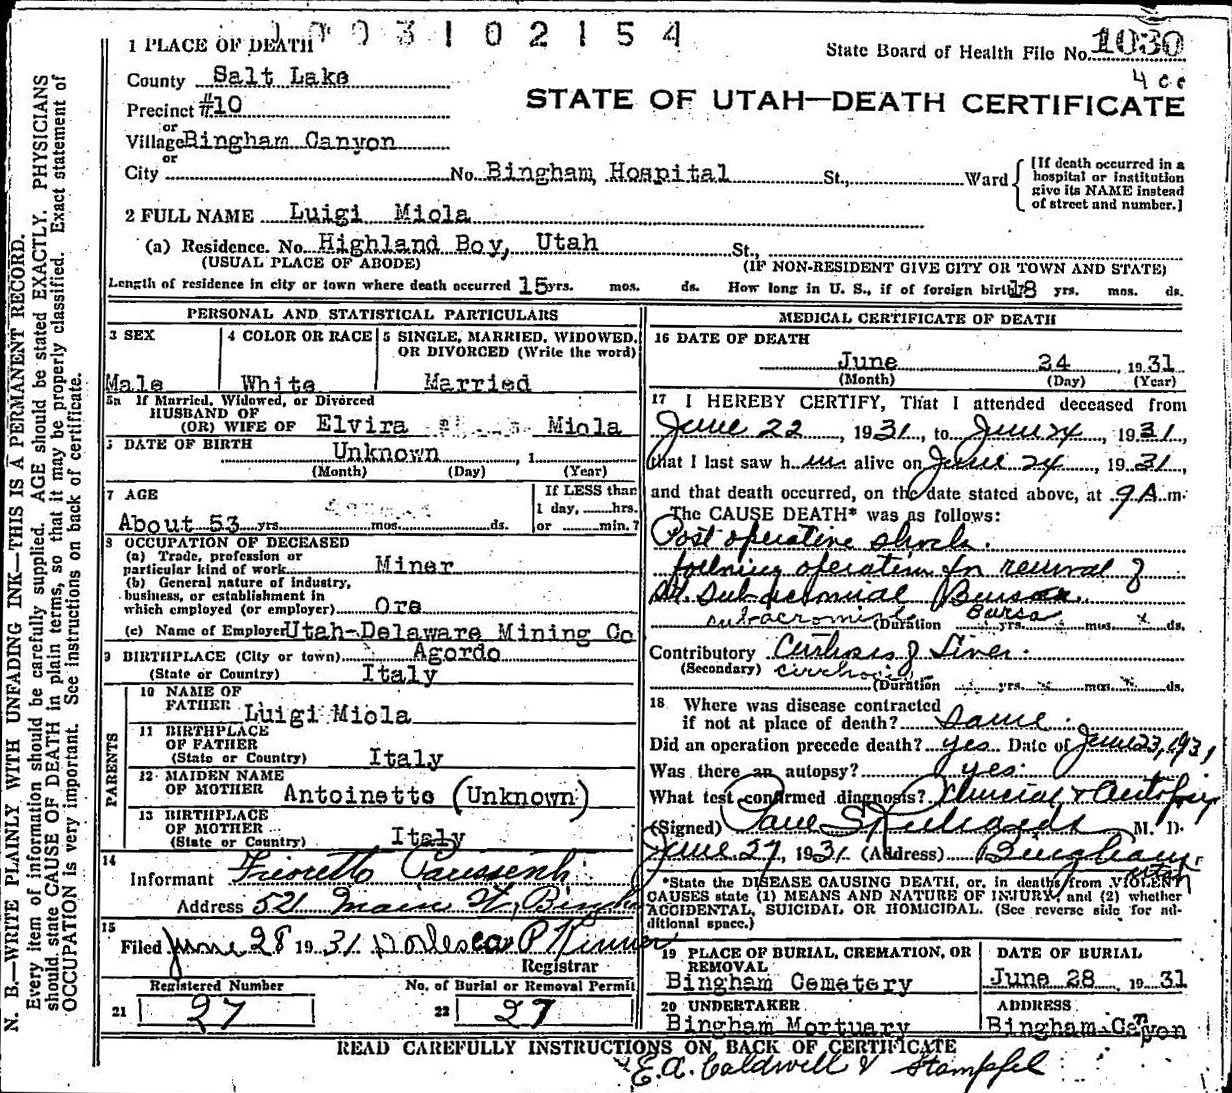 1003102154
1 PLACE OF DEATH
State Board of Health File No. 1030
4 cc
County Salt Lake
Precinct #10
STATE OF UTAH—DEATH CERTIFICATE
or
Village Bingham Canyon
or
City No. Bingham Hospital St., Ward
[If death occurred in a
hospital or institution
give its NAME instead
of street and number.]
2 FULL NAME Luigi Miola
(a) Residence. No. Highland Boy, Utah St.,
(USUAL PLACE OF ABODE) (IF NON-RESIDENT GIVE CITY OR TOWN AND STATE)
Length of residence in city or town where death occurred 15 yrs. mos. ds. How long in U. S., if of foreign birth? 18 yrs. mos. ds.
PERSONAL AND STATISTICAL PARTICULARS
3 SEX
Male
4 COLOR OR RACE
White
5 SINGLE, MARRIED, WIDOWED,
OR DIVORCED (Write the word)
Married
5a If Married, Widowed, or Divorced
HUSBAND OF
(OR) WIFE OF Elvira Miola
6 DATE OF BIRTH
Unknown , 1
(Month) (Day) (Year)
7 AGE
About 53 yrs. mos. ds.
If LESS than
1 day, hrs.
or min.?
8 OCCUPATION OF DECEASED
(a) Trade, profession or
particular kind of work Miner
(b) General nature of industry,
business, or establishment in
which employed (or employer) Ore
(c) Name of Employer Utah-Delaware Mining Co
9 BIRTHPLACE (City or town) Agordo
(State or Country) Italy
PARENTS
10 NAME OF
FATHER Luigi Miola
11 BIRTHPLACE
OF FATHER
(State or Country) Italy
12 MAIDEN NAME
OF MOTHER Antoinette (Unknown)
13 BIRTHPLACE
OF MOTHER
(State or Country) Italy
14
Informant Fioretto
Address 521 Main St, Bingham
15
Filed June 28 1931 P
Registrar
Registered Number
21 27
No. of Burial or Removal Permit
22 27
MEDICAL CERTIFICATE OF DEATH
16 DATE OF DEATH
June 24, 1931
(Month) (Day) (Year)
17 I HEREBY CERTIFY, That I attended deceased from
June 22, 1931, to June 24, 1931,
that I last saw him alive on June 24, 1931,
and that death occurred, on the date stated above, at 9 A m.
The CAUSE DEATH* was as follows:
Post operative shock.
following operation for removal of
Rt. Subacromial Bursa.
subacromial Bursa
(Duration yrs. mos. ds.
Contributory Cirrhosis of Liver.
(Secondary) cirrhosis
(Duration yrs. mos. ds.
18 Where was disease contracted
if not at place of death? Same.
Did an operation precede death? yes Date of June 23, 1931
Was there an autopsy? yes.
What test confirmed diagnosis? Clinical & Autopsy
(Signed) Paul S Richards M. D.
June 27, 1931 (Address) Bingham Utah
*State the DISEASE CAUSING DEATH, or, in deaths from VIOLENT
CAUSES state (1) MEANS AND NATURE OF INJURY, and (2) whether
ACCIDENTAL, SUICIDAL OR HOMICIDAL. (See reverse side for ad-
ditional space.)
19 PLACE OF BURIAL, CREMATION, OR
REMOVAL
Bingham Cemetery
DATE OF BURIAL
June 28, 1931
20 UNDERTAKER
Bingham Mortuary
ADDRESS
Bingham Canyon
READ CAREFULLY INSTRUCTIONS ON BACK OF CERTIFICATE
E.A. Caldwell & Stampfel
N. B.—WRITE PLAINLY WITH UNFADING INK—THIS IS A PERMANENT RECORD.
Every item of information should be carefully supplied. AGE should be stated EXACTLY. PHYSICIANS
should state CAUSE OF DEATH in plain terms, so that it may be properly classified. Exact statement of
OCCUPATION is very important. See instructions on back of certificate.